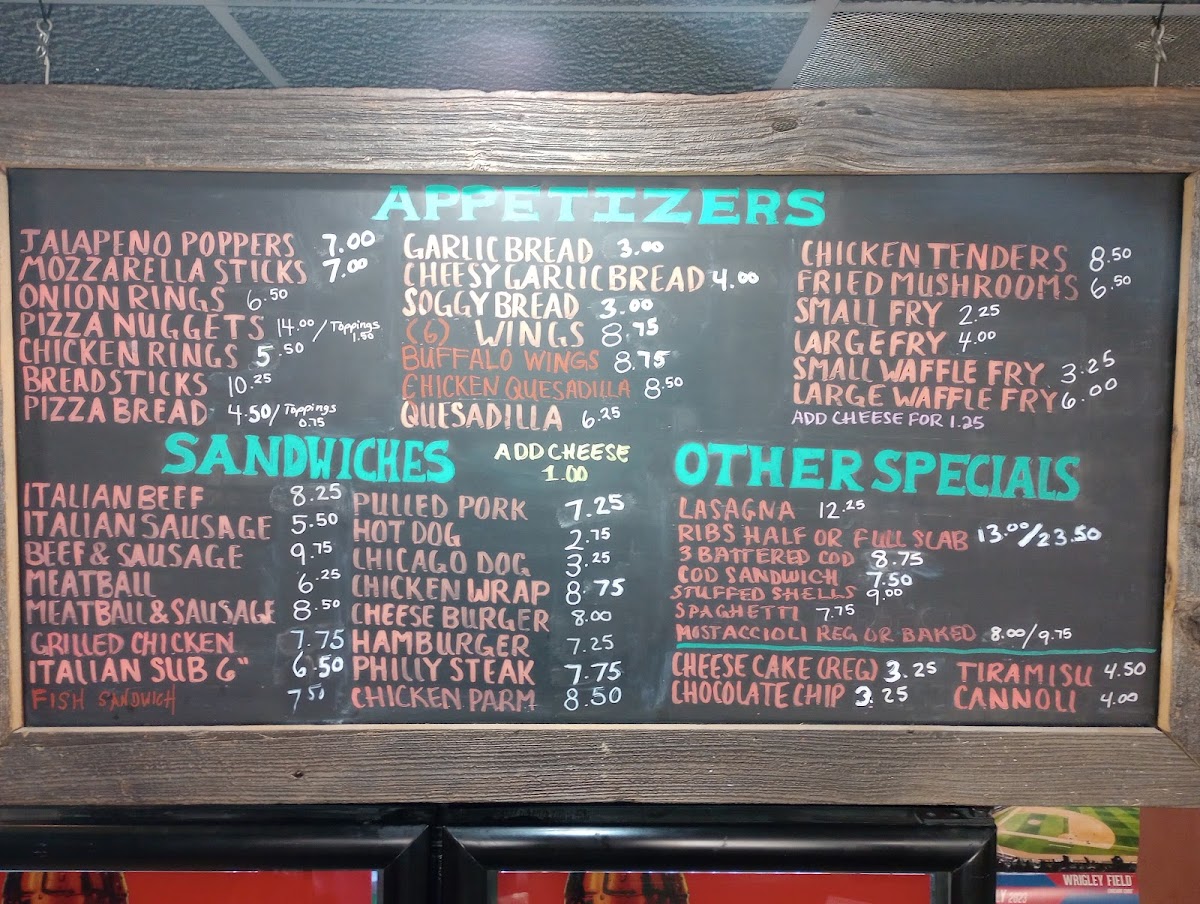 APPETIZERS
JALAPENO POPPERS 7.00
MOZZARELLA STICKS 7.00
ONION RINGS 6.50
PIZZA NUGGETS 14.00/Toppings 1.50
CHICKEN RINGS 5.50
BREADSTICKS 10.25
PIZZA BREAD 4.50/Toppings 0.75
GARLIC BREAD 3.00
CHEESY GARLIC BREAD 4.00
SOGGY BREAD 3.00
(6) WINGS 8.75
BUFFALO WINGS 8.75
CHICKEN QUESADILLA 8.50
QUESADILLA 6.25
CHICKEN TENDERS 8.50
FRIED MUSHROOMS 6.50
SMALL FRY 2.25
LARGE FRY 4.00
SMALL WAFFLE FRY 3.25
LARGE WAFFLE FRY 6.00
ADD CHEESE FOR 1.25
SANDWICHES
ADD CHEESE
1.00
ITALIAN BEEF 8.25
ITALIAN SAUSAGE 5.50
BEEF & SAUSAGE 9.75
MEATBALL 6.25
MEATBALL & SAUSAGE 8.50
GRILLED CHICKEN 7.75
ITALIAN SUB 6" 6.50
FISH SANDWICH 7.50
PULLED PORK 7.25
HOT DOG 2.75
CHICAGO DOG 3.25
CHICKEN WRAP 8.75
CHEESE BURGER 8.00
HAMBURGER 7.25
PHILLY STEAK 7.75
CHICKEN PARM 8.50
OTHER SPECIALS
LASAGNA 12.25
RIBS HALF OR FULL SLAB 13.00/23.50
3 BATTERED COD 8.75
COD SANDWICH 7.50
STUFFED SHELLS 9.00
SPAGHETTI 7.75
MOSTACCIOLI REG OR BAKED 8.00/9.75
CHEESE CAKE (REG) 3.25
CHOCOLATE CHIP 3.25
TIRAMISU 4.50
CANNOLI 4.00
WRIGLEY FIELD
LY 2023